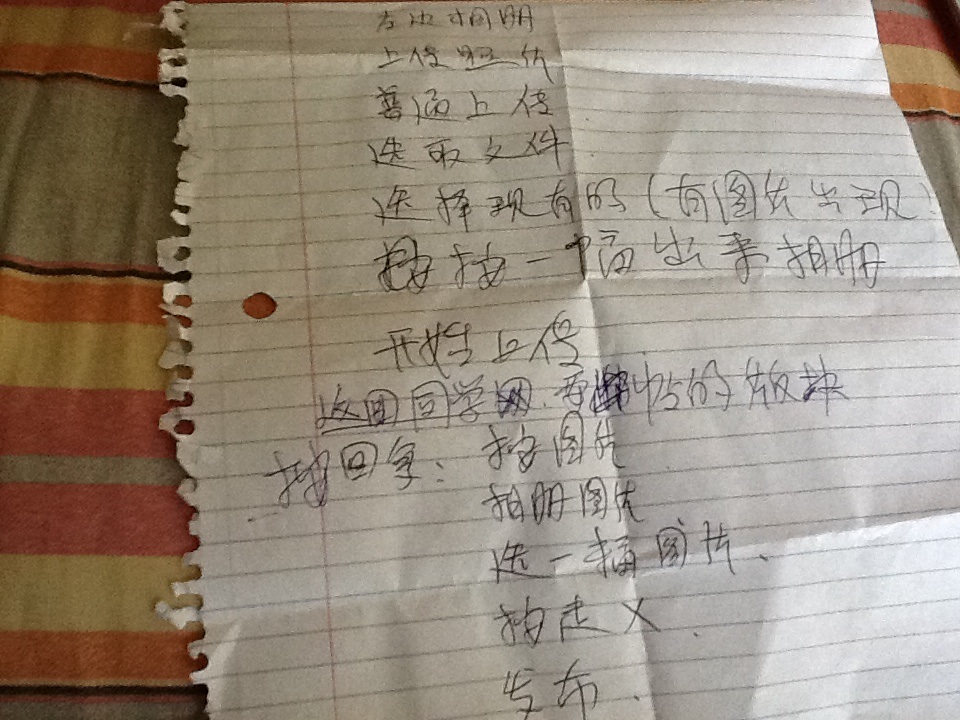 相册
上传照片
普通上传
选取文件
选择现有的(有图片出现)
按一幅出来相册
开始上传
返回同学网 帖的版块
按回复: 按图片
相册图片
选一幅图片、
按走乂.
发布.